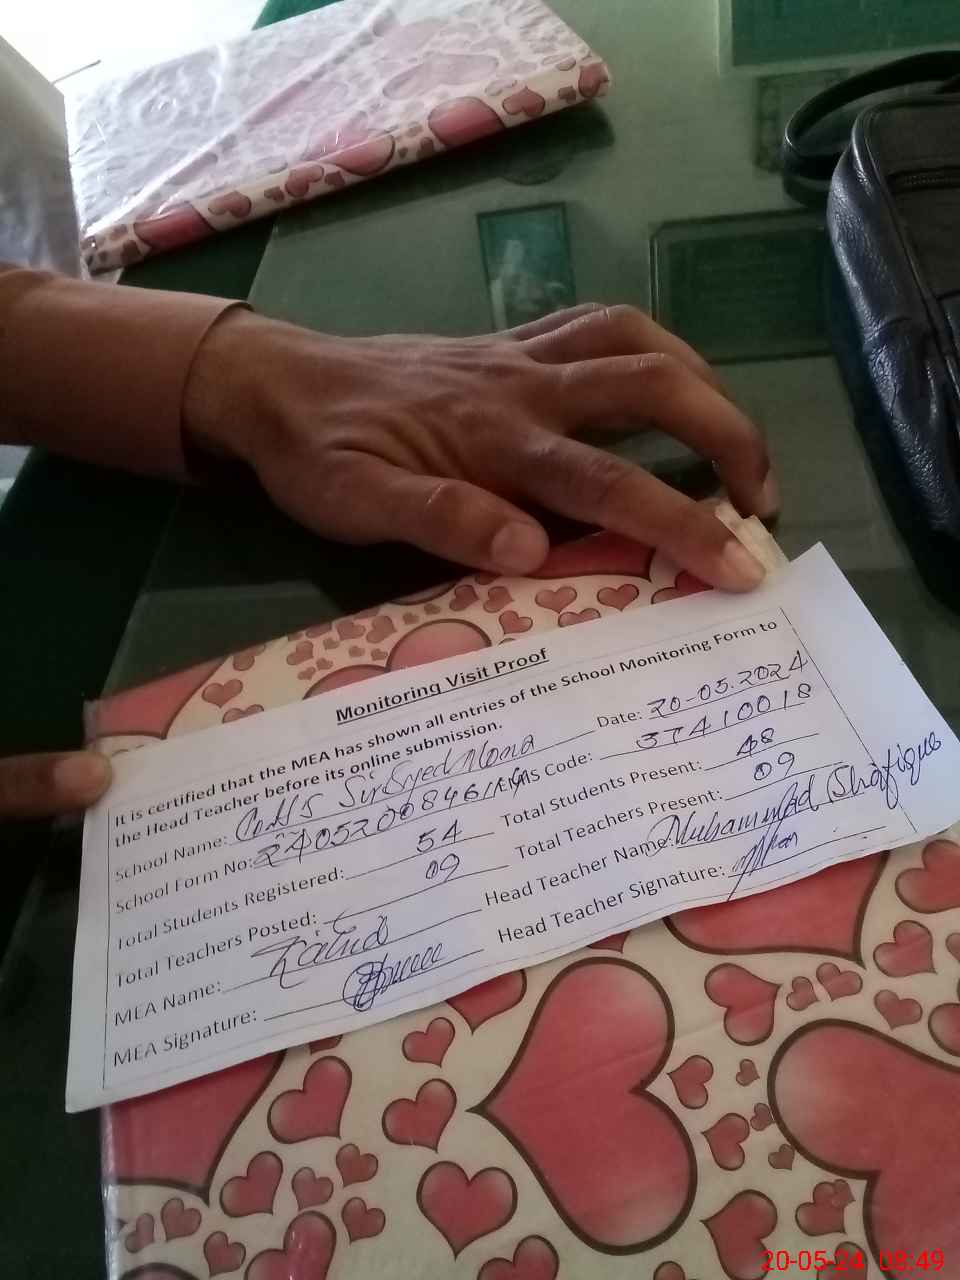 Monitoring Visit Proof
It is certified that the MEA has shown all entries of the School Monitoring Form to
the Head Teacher before its online submission.
Date: 20-05.2024
School Name: Sir Syed
EMIS Code: 37410018
School Form No:
Total Students Present: 48
Total Students Registered: 54
Total Teachers Present: 09
Total Teachers Posted: 09
Head Teacher Name: Muhammad Shafique
MEA Name: Zahid
Head Teacher Signature:
MEA Signature:
20-05-24 08:49